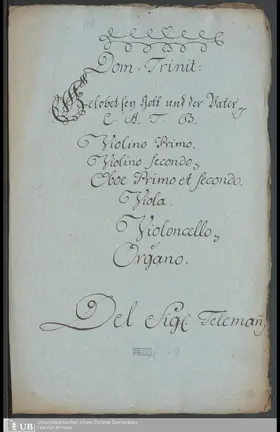 Dom. Trinit:
Gelobet sey Gott und der Vater,
C. A. T. B.
Violino Primo.
Violino Secondo,
Oboe Primo et Secondo.
Viola.
Violoncello,
è
Organo.
Del Sigl Teleman,
UB
Universitätsbibliothek Johann Christian Senckenberg
Frankfurt am Main